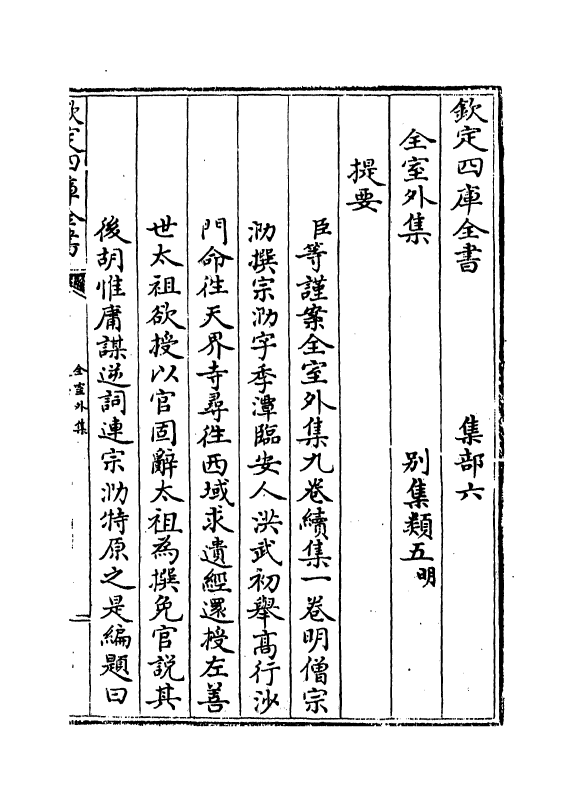 欽定四庫全書　集部六
全室外集　別集類五明
提要
臣等謹案全室外集九卷續集一卷明僧宗
泐撰宗泐字季潭臨安人洪武初舉髙行沙
門命徃天界寺尋徃西域求遺經還授左善
世太祖欲授以官固辭太祖為撰免官説其
後胡惟庸謀逆詞連宗泐特原之是編題曰
欽定四庫全書
全室外集